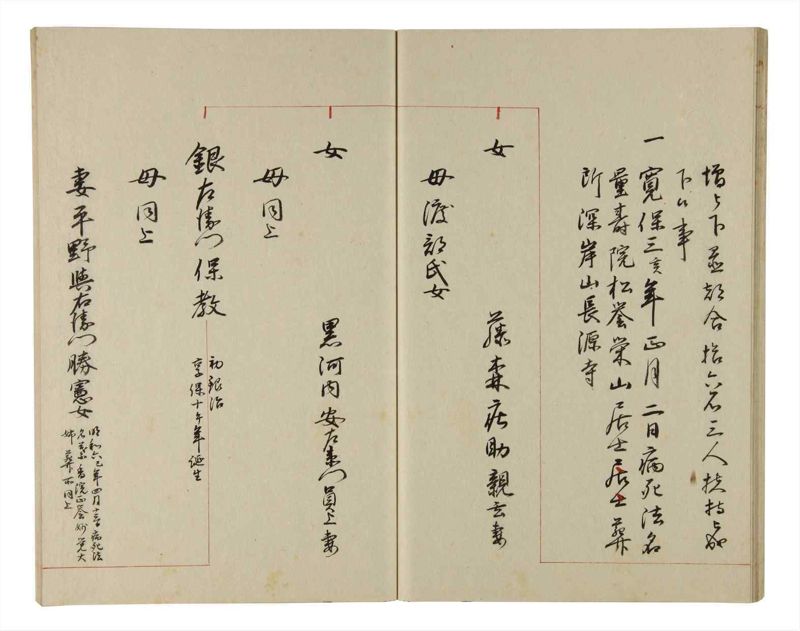 増與下並都合拾六石三人扶持成
下候事
一寛保三亥年正月二日病死法名
量寿院松誉栄山居士居士葬
所深岸山長源寺
女
藤森庄助親云妻
母渡部氏女
女
黒河内安左衛門員上妻
母同上
銀右衛門保教
初銀治
享保十午年誕生
母同上
妻平野與右衛門勝憲女
明和六丑年四月十三日病死法
名
香院正誉妙覚大
姉葬所同上